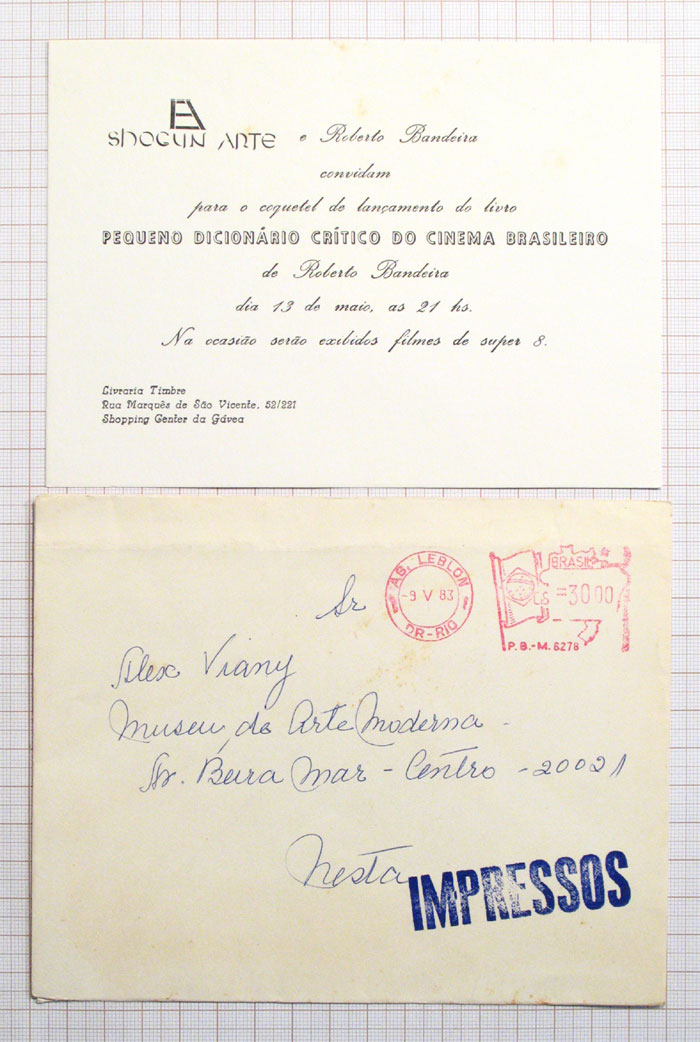 SHOGUN ARTE e Roberto Bandeira
convidam
para o coquetel de lançamento do livro
PEQUENO DICIONÁRIO CRÍTICO DO CINEMA BRASILEIRO
de Roberto Bandeira
dia 13 de maio, as 21 hs.
Na ocasião serão exibidos filmes de super 8.
Livraria Timbre
Rua Marquês de São Vicente, 52/221
Shopping Center da Gávea
AG. LEBLON
-9 V 83
DR-RIO
BRASIL
=3000
P.B.-M. 6278
Sr
Alex Viany
Museu de Arte Moderna -
Av. Beira Mar - Centro - 20021
Nesta
IMPRESSOS